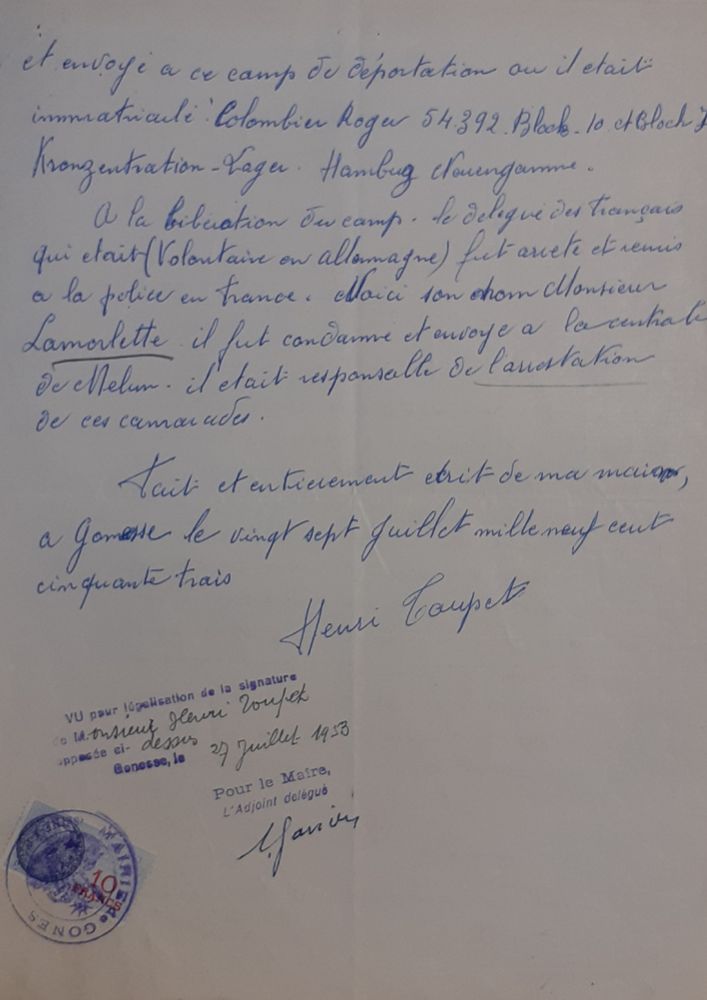 et envoyé a ce camp de déportation ou il etait
immatriculé : Colombier Roger 54.392. Block - 10 et Block
Kronzentration - Lager. Hambug Neuengamme.
A la liberation du camp. le delegué des français
qui etait (Volontaire en allemagne) fut areté et remis
a la police en france. Voici son nom Monsieur
Lamorlette. il fut condamné et envoyé a la centrale
de Melun. il etait responsable de l'arrestation
de ces camarades.
Fait et entierement ecrit de ma main,
a Gonesse le vingt sept Juillet mille neuf cent
cinquante trois
Henri Toupet
VU pour légalisation de la signature
de Monsieur Henri Toupet
apposée ci-dessus
Gonesse, le 27 Juillet 1953
Pour le Maire,
L'Adjoint délégué
MAIRIE de GONES
10
FRANCS